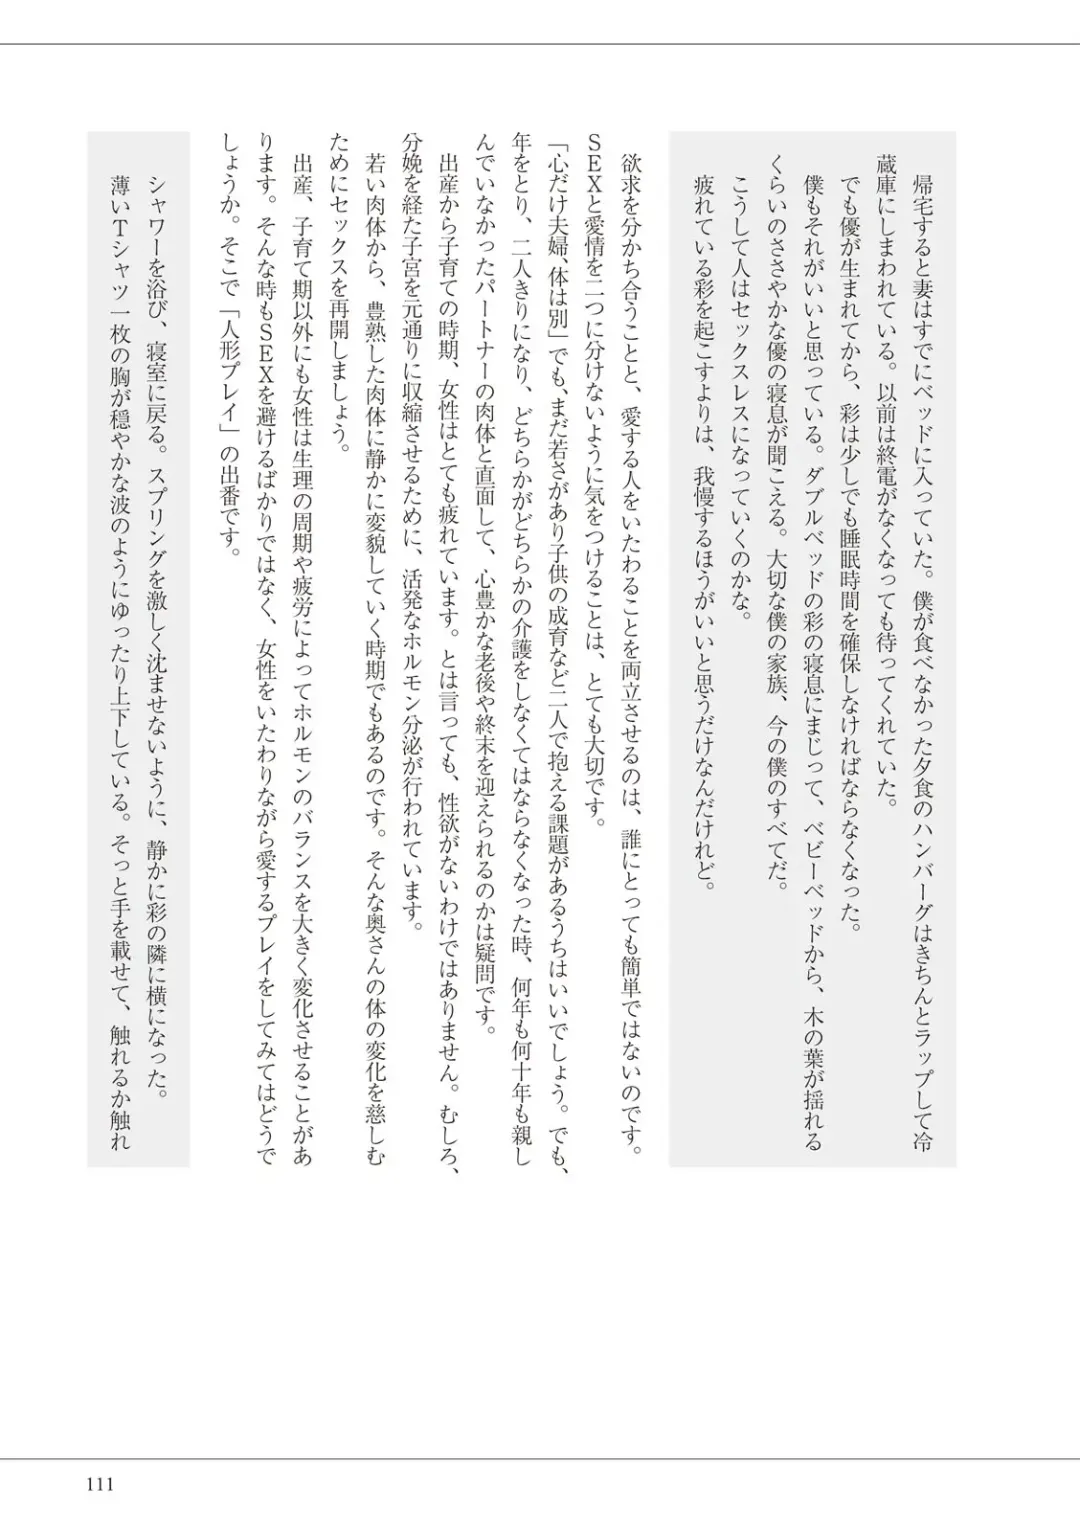 帰宅すると妻はすでにベッドに入っていた。僕が食べなかった夕食のハンバーグはきちんとラップして冷
蔵庫にしまわれている。以前は終電がなくなっても待ってくれていた。
でも優が生まれてから、彩は少しでも睡眠時間を確保しなければならなくなった。
僕もそれがいいと思っている。ダブルベッドの彩の寝息にまじって、ベビーベッドから、木の葉が揺れる
くらいのささやかな優の寝息が聞こえる。大切な僕の家族、今の僕のすべてだ。
こうして人はセックスレスになっていくのかな。
疲れている彩を起こすよりは、我慢するほうがいいと思うだけなんだけれど。
欲求を分かち合うことと、愛する人をいたわることを両立させるのは、誰にとっても簡単ではないのです。
SEXと愛情を二つに分けないように気をつけることは、とても大切です。
「心だけ夫婦、体は別」でも、まだ若さがあり子供の成育など二人で抱える課題があるうちはいいでしょう。でも、
年をとり、二人きりになり、どちらかがどちらかの介護をしなくてはならなくなった時、何年も何十年も親し
んでいなかったパートナーの肉体と直面して、心豊かな老後や終末を迎えられるのかは疑問です。
出産から子育ての時期、女性はとても疲れています。とは言っても、性欲がないわけではありません。むしろ、
分娩を経た子宮を元通りに収縮させるために、活発なホルモン分泌が行われています。
若い肉体から、豊熟した肉体に静かに変貌していく時期でもあるのです。そんな奥さんの体の変化を慈しむ
ためにセックスを再開しましょう。
出産、子育て期以外にも女性は生理の周期や疲労によってホルモンのバランスを大きく変化させることがあ
ります。そんな時もSEXを避けるばかりではなく、女性をいたわりながら愛するプレイをしてみてはどうで
しょうか。そこで「人形プレイ」の出番です。
シャワーを浴び、寝室に戻る。スプリングを激しく沈ませないように、静かに彩の隣に横になった。
薄いTシャツ一枚の胸が穏やかな波のようにゆったり上下している。そっと手を載せて、触れるか触れ
111